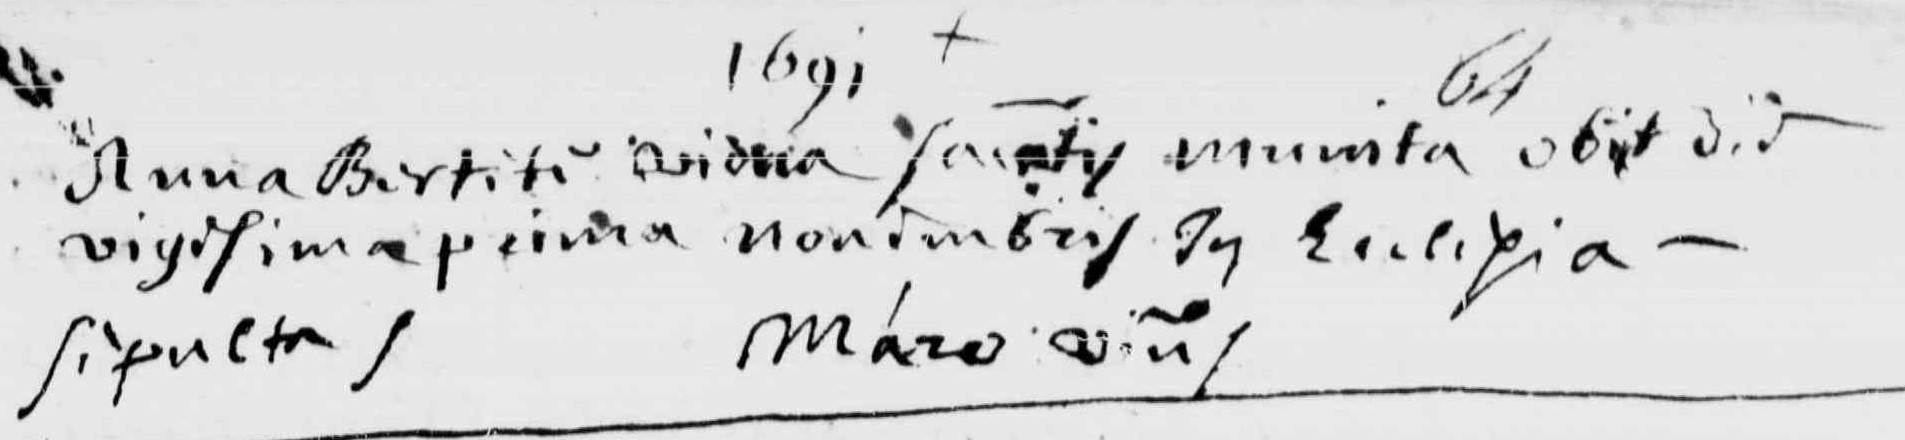 1691 + 64
Anna Bertité vidua sacⁿtis munita obijt die
vigesima prima novembris In Ecclesia —
sepulta s Máro viũs